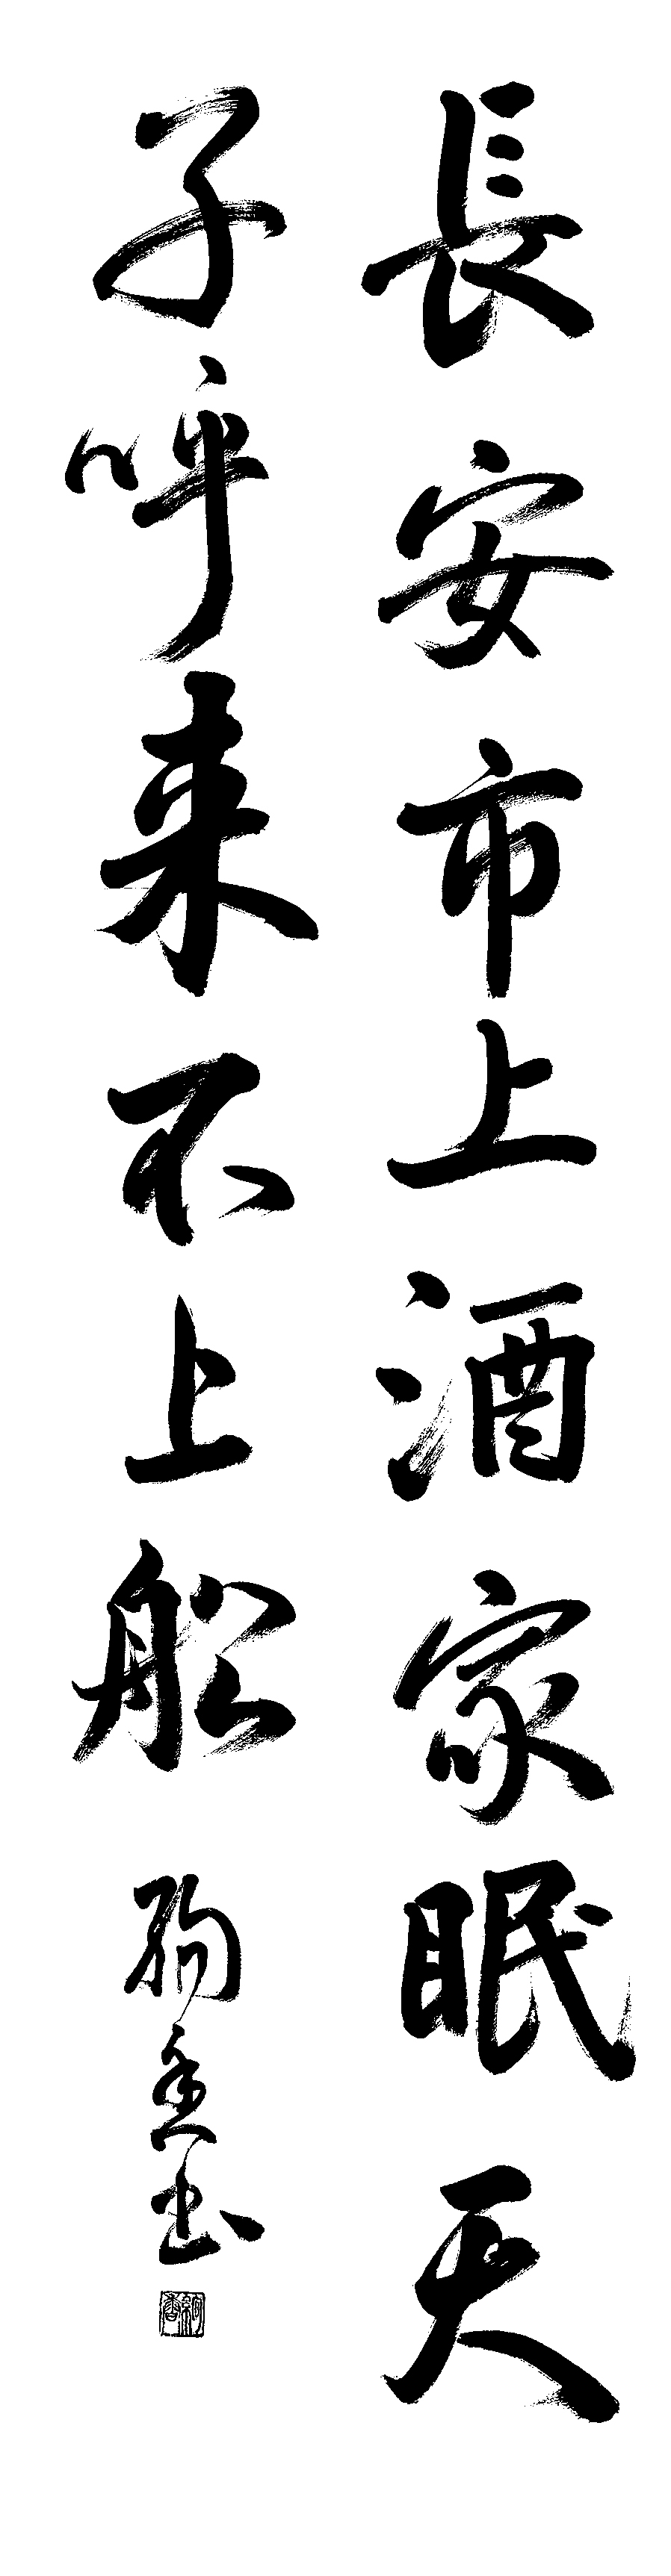 長安市上酒家眠天
子呼来不上船 絢香書
絢香